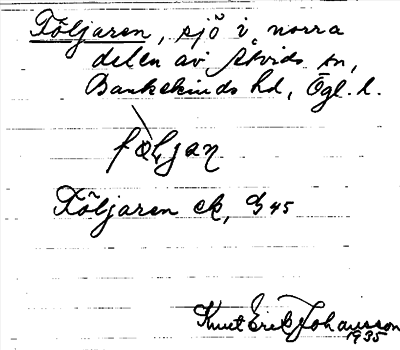 Följaren, sjö i norra
delen av Åtvids sn,
Bankekinds hd, Ögl. l.
följan
Följaren ek, 45
Knut Erik Johansson
1935